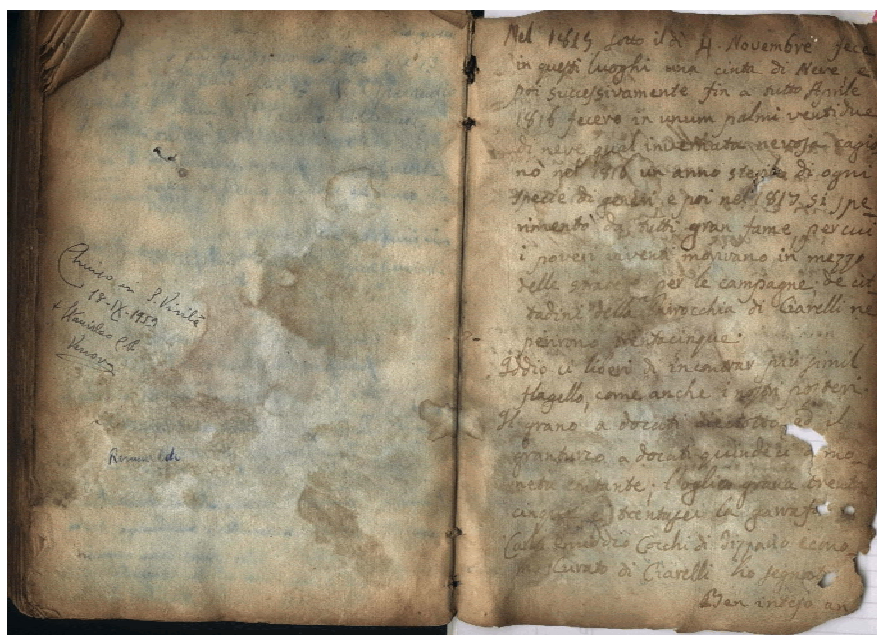 Chiuso in S. Visita
18-IX-1959
+ Stanislao
Vescovo
Nel 1815 sotto il dì 4. Novembre fece
in questi luoghi una cinta di Neve, e
poi successivamente fin a tutto Aprile
1816 fecero in unum palmi ventidue
di neve qual invernata nevosa cagio
nò nel 1816 un anno sterile di ogni
specie di generi e poi nel 1817 si spe
rimentò da tutti gran fame per cui
i poveri morivano in mezzo
delle strade e per le campagne: de cit
tadini della Parrocchia di Ciarelli ne
perirono trentacinque.
Iddio ci liberi di incontrar più simil
flagello, come anche i nostri posteri.
Il grano a docati diciotto, ed il
granturco a docati quindeci a mo
neta contante; l'oglio grana trenta
cinque e trentasei la garafa
Cocchi di econo
mo Curato di Ciarelli ho segnato
Ben inteso an